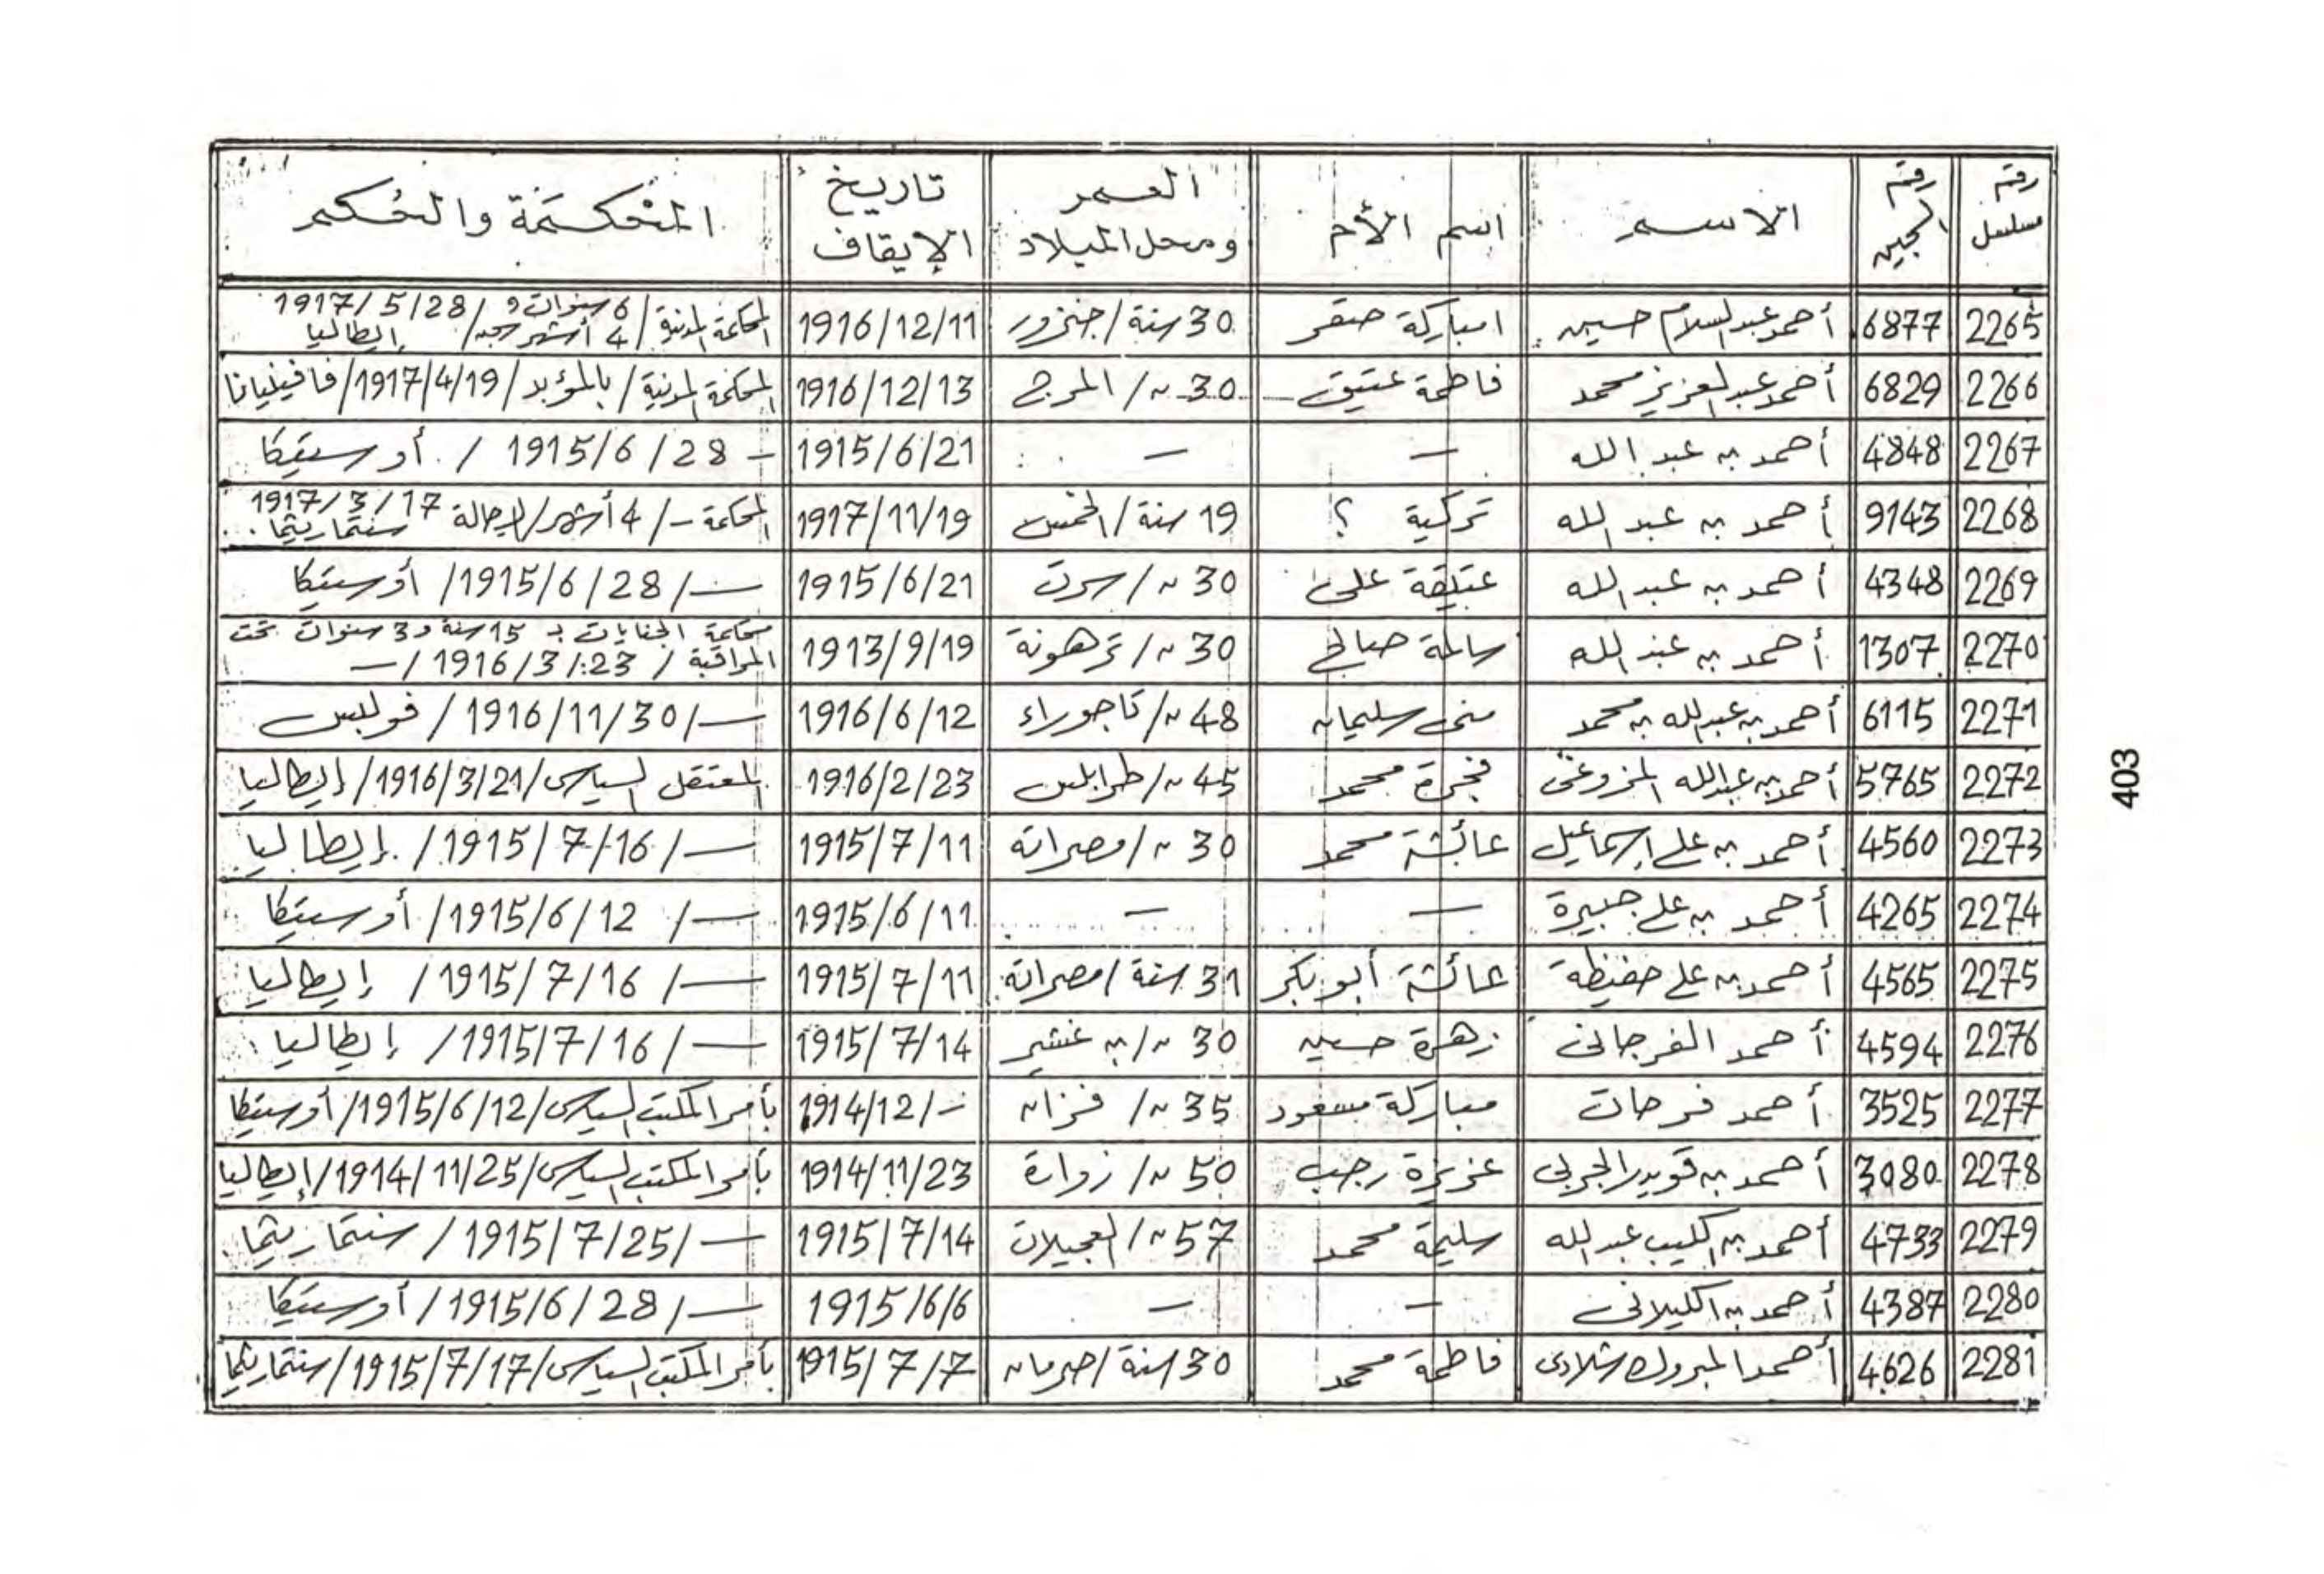 رقم مسلسل | رقم السجين | الاسم | اسم الأم | العمر ومحل الميلاد | تاريخ الإيقاف | المحكمة والحكم
2265 | 6877 | أحمد عبد السلام حسين | امباركة صقر | 30 سنة / جنزور | 1916/12/11 | المحكمة المدنية / 6 سنوات و 4 أشهر سجن / 1917/5/28 / إيطاليا
2266 | 6829 | أحمد عبد العزيز محمد | فاطمة عتيق | 30 ~ / المرج | 1916/12/13 | المحكمة المدنية / بالمؤبد / 1917/4/19 / فافينيانا
2267 | 4848 | أحمد بن عبد الله | – | – | 1915/6/21 | – 1915/6/28 / أوستيكا
2268 | 9143 | أحمد بن عبد الله | تركية ؟ | 19 سنة / الخمس | 1917/11/19 | المحكمة – / 4 أشهر / 1917/3/17 سنتماريتما
2269 | 4348 | أحمد بن عبد الله | عتيقة علي | 30 ~ / سرت | 1915/6/21 | – / 1915/6/28 / أوستيكا
2270 | 1307 | أحمد بن عبد الله | سالمة صالح | 30 ~ / ترهونة | 1913/9/19 | محكمة الجنايات بـ 15 سنة و 3 سنوات تحت المراقبة / 1916/3/23 / –
2271 | 6115 | أحمد بن عبد الله بن محمد | منى سليمان | 48 ~ / تاجوراء | 1916/6/12 | – / 1916/11/30 / فوللس
2272 | 5765 | أحمد بن عبد الله المزوغي | فجرة محمد | 45 ~ / طرابلس | 1916/2/23 | المعتقل السياسي / 1916/3/21 / إيطاليا
2273 | 4560 | أحمد بن علي إسماعيل | عائشة محمد | 30 ~ / مصراتة | 1915/7/11 | – / 1915/7/16 / إيطاليا
2274 | 4265 | أحمد بن علي جبيرة | – | – | 1915/6/11 | – / 1915/6/12 / أوستيكا
2275 | 4565 | أحمد بن علي حفيظة | عائشة أبو بكر | 31 سنة / مصراتة | 1915/7/11 | – / 1915/7/16 / إيطاليا
2276 | 4594 | أحمد الفرجاني | زهرة حسين | 30 ~ / بن غشير | 1915/7/14 | – / 1915/7/16 / إيطاليا
2277 | 3525 | أحمد فرحات | مباركة مسعود | 35 ~ / فزان | 1914/12/– | بأمر المكتب السياسي / 1915/6/12 / أوستيكا
2278 | 3080 | أحمد بن قويدر الجربي | عزيزة رجب | 50 ~ / زوارة | 1914/11/23 | بأمر المكتب السياسي / 1914/11/25 / إيطاليا
2279 | 4733 | أحمد بن الكليب عبد الله | سليمة محمد | 57 ~ / العجيلات | 1915/7/14 | – / 1915/7/25 / سنتماريتما
2280 | 4387 | أحمد بن الكيلاني | – | – | 1915/6/6 | – / 1915/6/28 / أوستيكا
2281 | 4626 | أحمد المبروك شلادي | فاطمة محمد | 30 سنة / صرمان | 1915/7/7 | بأمر المكتب السياسي / 1915/7/17 / سنتماريتما
403